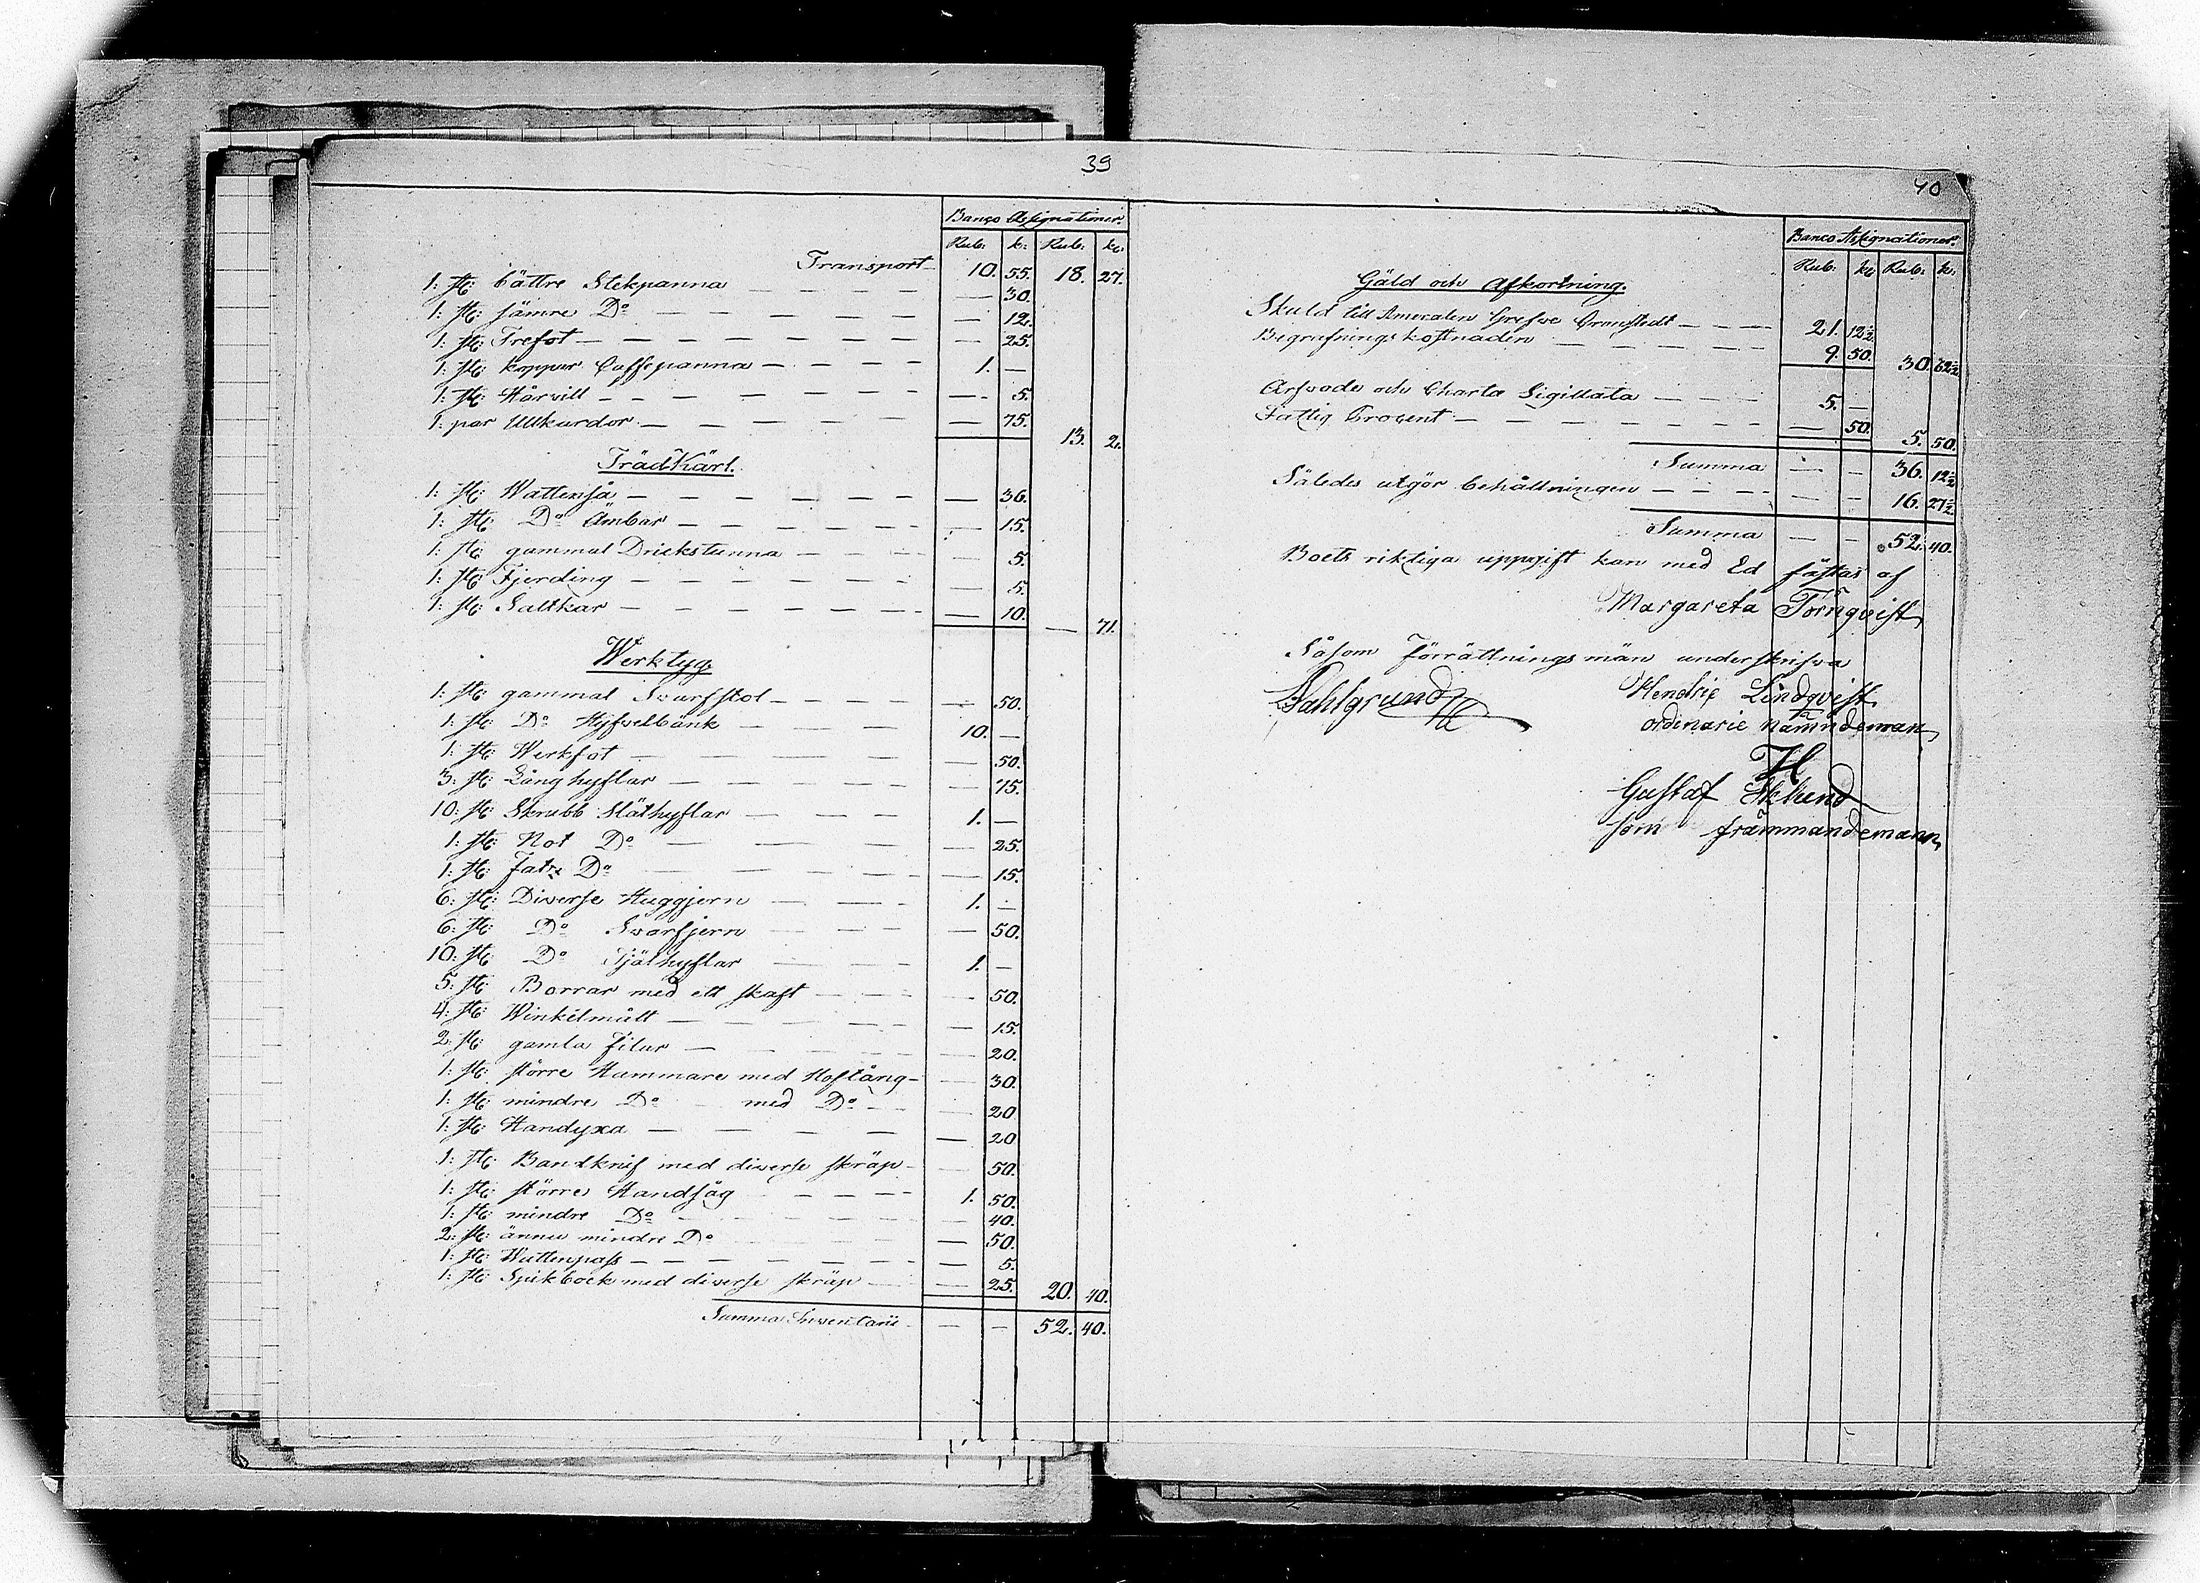 39
Banco Assignationer.
Rub: k: Rub: k:
Transport 10. 55. 18. 27.
1: st: bättre Stekpanna — 30.
1: st: sämre Do — 12.
1: st: Trefot — 25.
1: st: koppar Caffepanna 1. —
1: st: Hårsill — 5.
1: par Ullkardor — 75. 13. 2.
Trädkärl.
1: st: Wattenså — 36.
1: st: Do Ämbar — 15.
1: st: gammal Drickstunna — 5.
1: st: Fjerding — 5.
1: st: Saltkar — 10. — 71.
Werktyg
1: st: gammal Svarfstol — 50.
1: st: Do Hyfvelbänk 10. —
1: st: Werkfot — 50.
3: st: Långhyflar — 75.
10: st: Skrubb Släthyflar 1. —
1: st: Not Do — 25.
1: st: Do — 15.
6: st: Diverse Huggjern 1. —
6: st: Do Svarfjern — 50.
10: st: Do Kjälhyflar 1. —
5: st: Borrar med ett skaft — 50.
4: st: Winkelmått — 15.
2: st: gamla filar — 20.
1: st: större Hammare med Hoftång — 30.
1: st: mindre Do med Do — 20
1: st: Handyxa — 20
1: st: Bandknif med diverse skräp — 50.
1: st: större Handsåg 1. 50.
1: st: mindre Do — 40.
2: st: ännu mindre Do — 50.
1: st: Wattenpass — 5.
1: st: Spikbock med diverse skräp — 25. 20. 40.
Summa Inventarii — — 52. 40.
40
Banco Assignationer.
Rub: k: Rub: k:
Gäld och Afkortning.
Skuld till Grefve Armfedt 21. 12½
Begrafningskostnaden 9. 50. 30. 62½
Arfvode och Charta Sigillata 5. —
Fattig Procent — 50. 5. 50.
Summa — — 36. 12½
Således utgör behållningen — — 16. 27½.
Summa — — 52. 40.
Boets riktiga uppgift kan med Ed fästas af
Margareta Törnqvist
Såsom Förrättningsmän underskrifva
Dahlgrund
Hendric Lindqvist
ordinarie nämndeman
Gustaf Eklund
som främmandemann